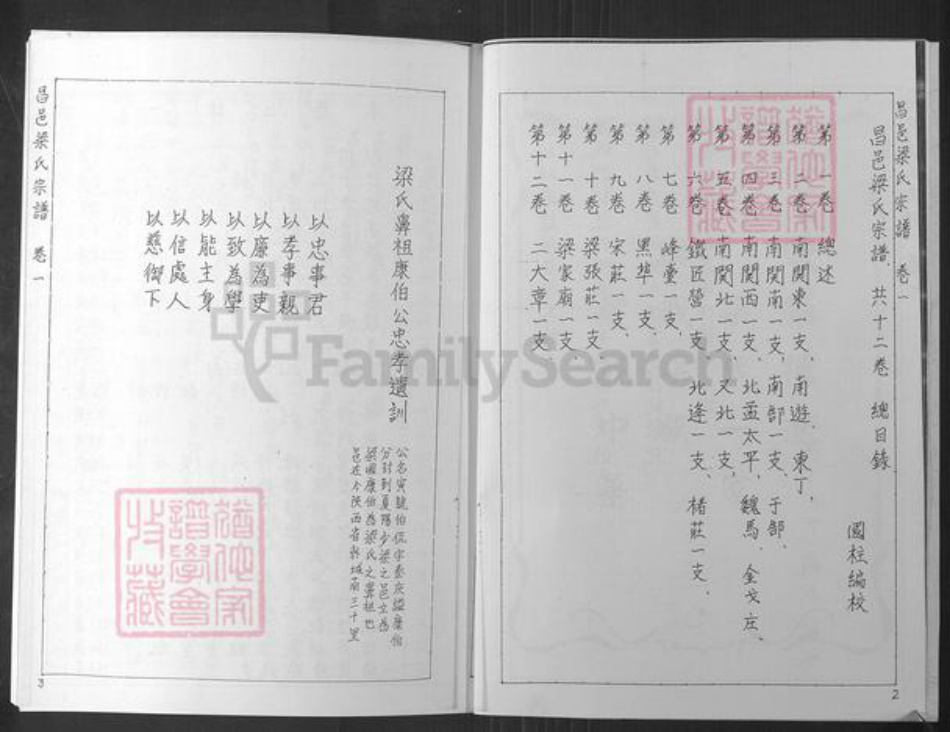 昌邑梁氏宗譜 卷一
昌邑梁氏宗譜 共十二卷 總目錄
國柱編校
第一卷 總述
第二卷 南関東一支、南遊、東丁、
第三卷 南関南一支、南部一支、于部、
第四卷 南関西一支、北孟太平、魏馬、金戈庄、
第五卷 南関北一支、又北一支、
第六卷 鐵匠營一支、北逄一支、楮莊一支、
第七卷 峰臺一支、
第八卷 黑埠一支、
第九卷 宋莊一支、
第十卷 梁張莊一支
第十一卷 梁家廟一支、
第十二卷 二大章一支、
2
梁氏鼻祖康伯公忠孝遺訓
公名寅號伯侃字泰庆諡康伯
分封到夏陽少梁之邑立為
梁國康伯為梁氏之鼻祖也
邑在今陝西省韩城南三十里
以忠事君
以孝事親
以廉為吏
以致為學
以能主身
以信處人
以慈御下
昌邑梁氏宗譜 卷一
3
FamilySearch